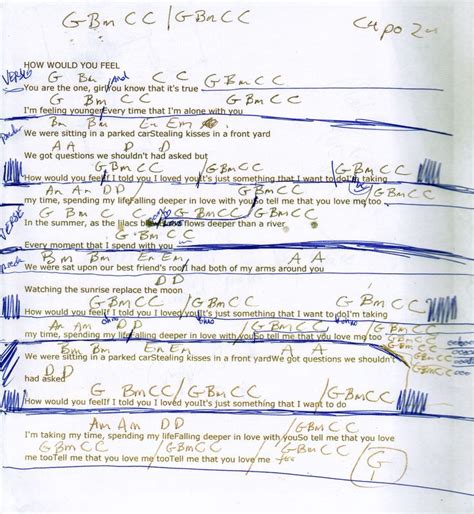 G Bm C C / G Bm C C
Capo 2
HOW WOULD YOU FEEL
VERSE G Bm C C G Bm C C
You are the one, girl you know that it's true
G Bm C C G Bm C C
I'm feeling younger Every time that I'm alone with you
Bm Bm Em Em
We were sitting in a parked carStealing kisses in a front yard
A A D D
We got questions we shouldn't had asked but
G Bm C C / G Bm C C / G Bm C C
How would you feelIf I told you I loved youIt's just something that I want to doI'm taking
Am Am D D / G Bm C C
my time, spending my lifeFalling deeper in love with youSo tell me that you love me too
VERSE G Bm C C / G Bm C C / G Bm C C
In the summer, as the lilacs bloom flows deeper than a river
G Bm C C
Every moment that I spend with you
Bm Bm Em Em A A
We were sat upon our best friend's roofI had both of my arms around you
D D
Watching the sunrise replace the moon
G Bm C C / G Bm C C / G Bm C C
How would you feelIf I told you I loved youIt's just something that I want to doI'm taking
Am Am D D / G Bm C C / G Bm C C
my time, spending my lifeFalling deeper in love with youSo tell me that you love me too
G Bm C C
G Bm C C
G Bm C C
Bm Bm Em Em A A
We were sitting in a parked carStealing kisses in a front yardWe got questions we shouldn't
D D
had asked
G Bm C C / G Bm C C / G Bm C C
How would you feelIf I told you I loved youIt's just something that I want to do
Am Am D D / G Bm C C
I'm taking my time, spending my lifeFalling deeper in love with youSo tell me that you love
G Bm C C / G Bm C C / G
me tooTell me that you love me tooTell me that you love me too